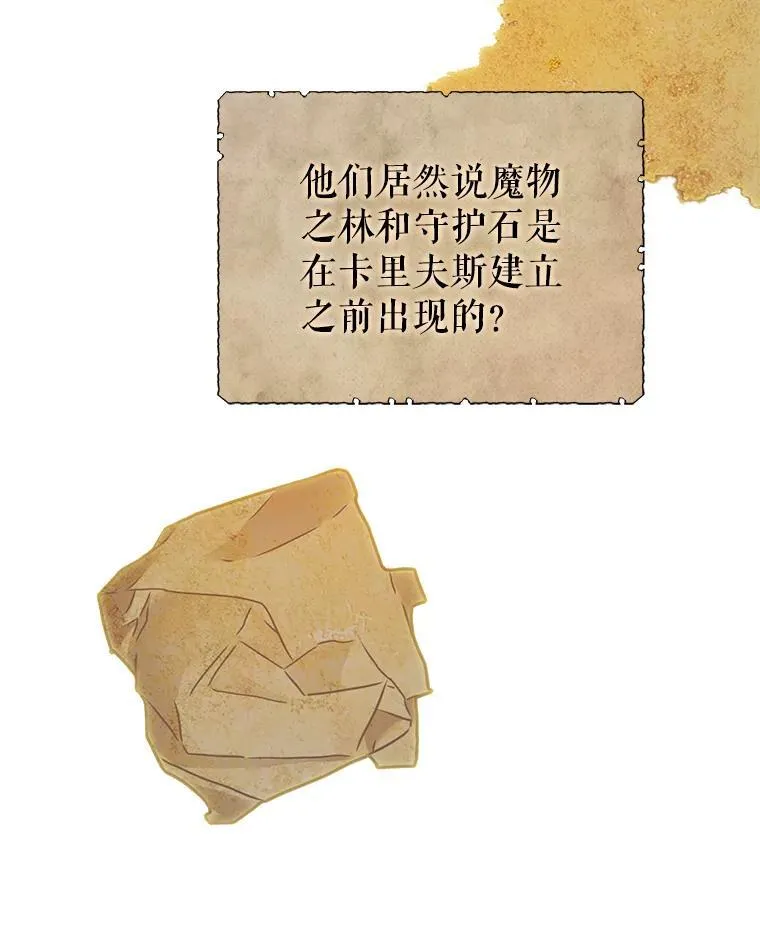 他们居然说魔物
之林和守护石是
在卡里夫斯建立
之前出现的？